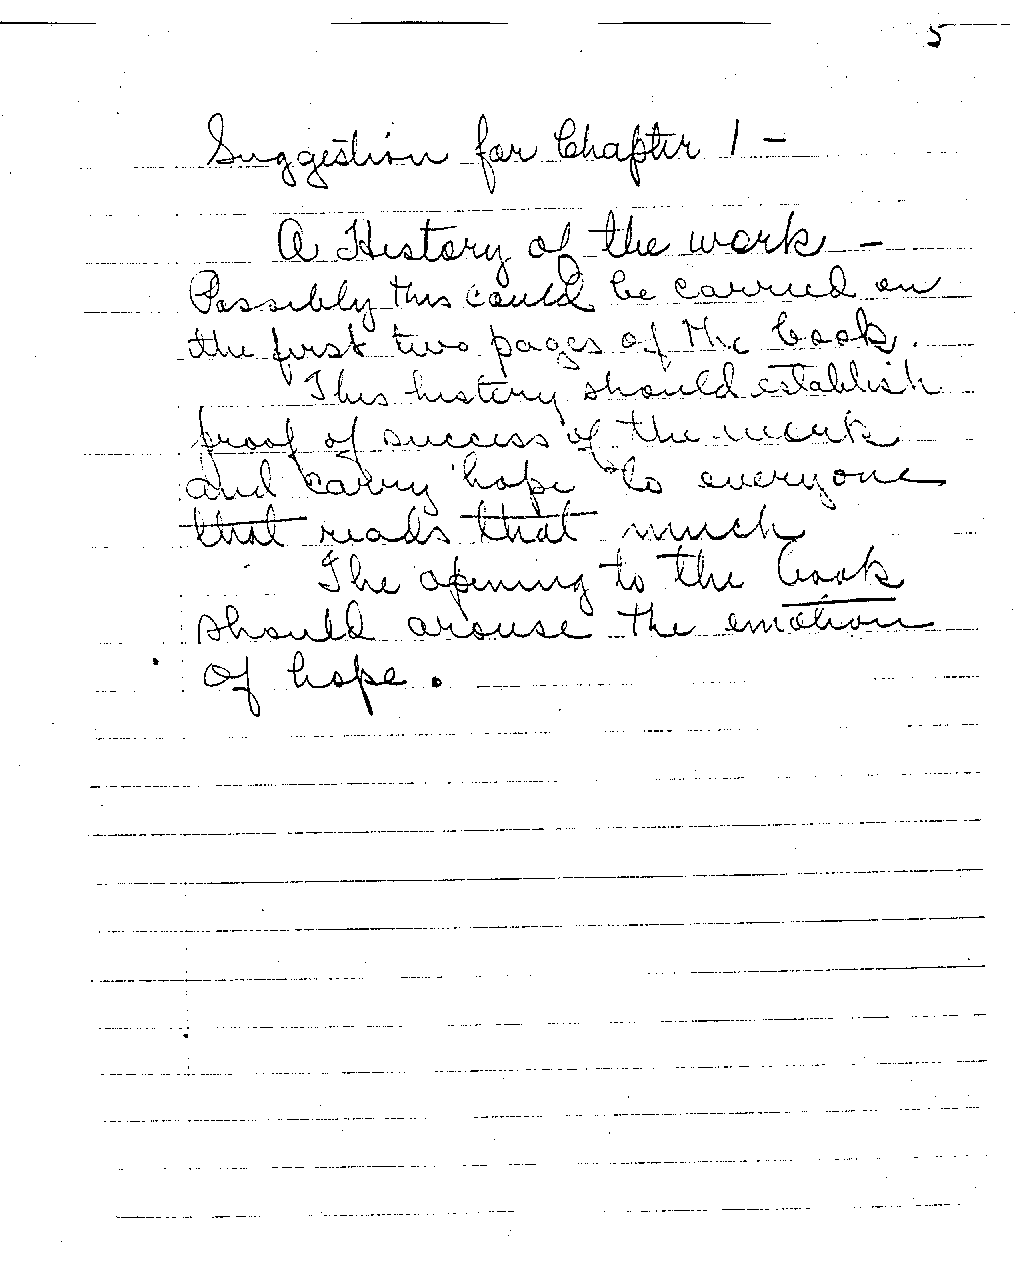 5
Suggestion for Chapter 1 -
A History of the work -
Possibly this could be carried on
the first two pages of the book.
This history should establish
proof of success of the work
and carry hope to everyone
that reads that much
The opening to the book
should arouse the emotion
of hope.